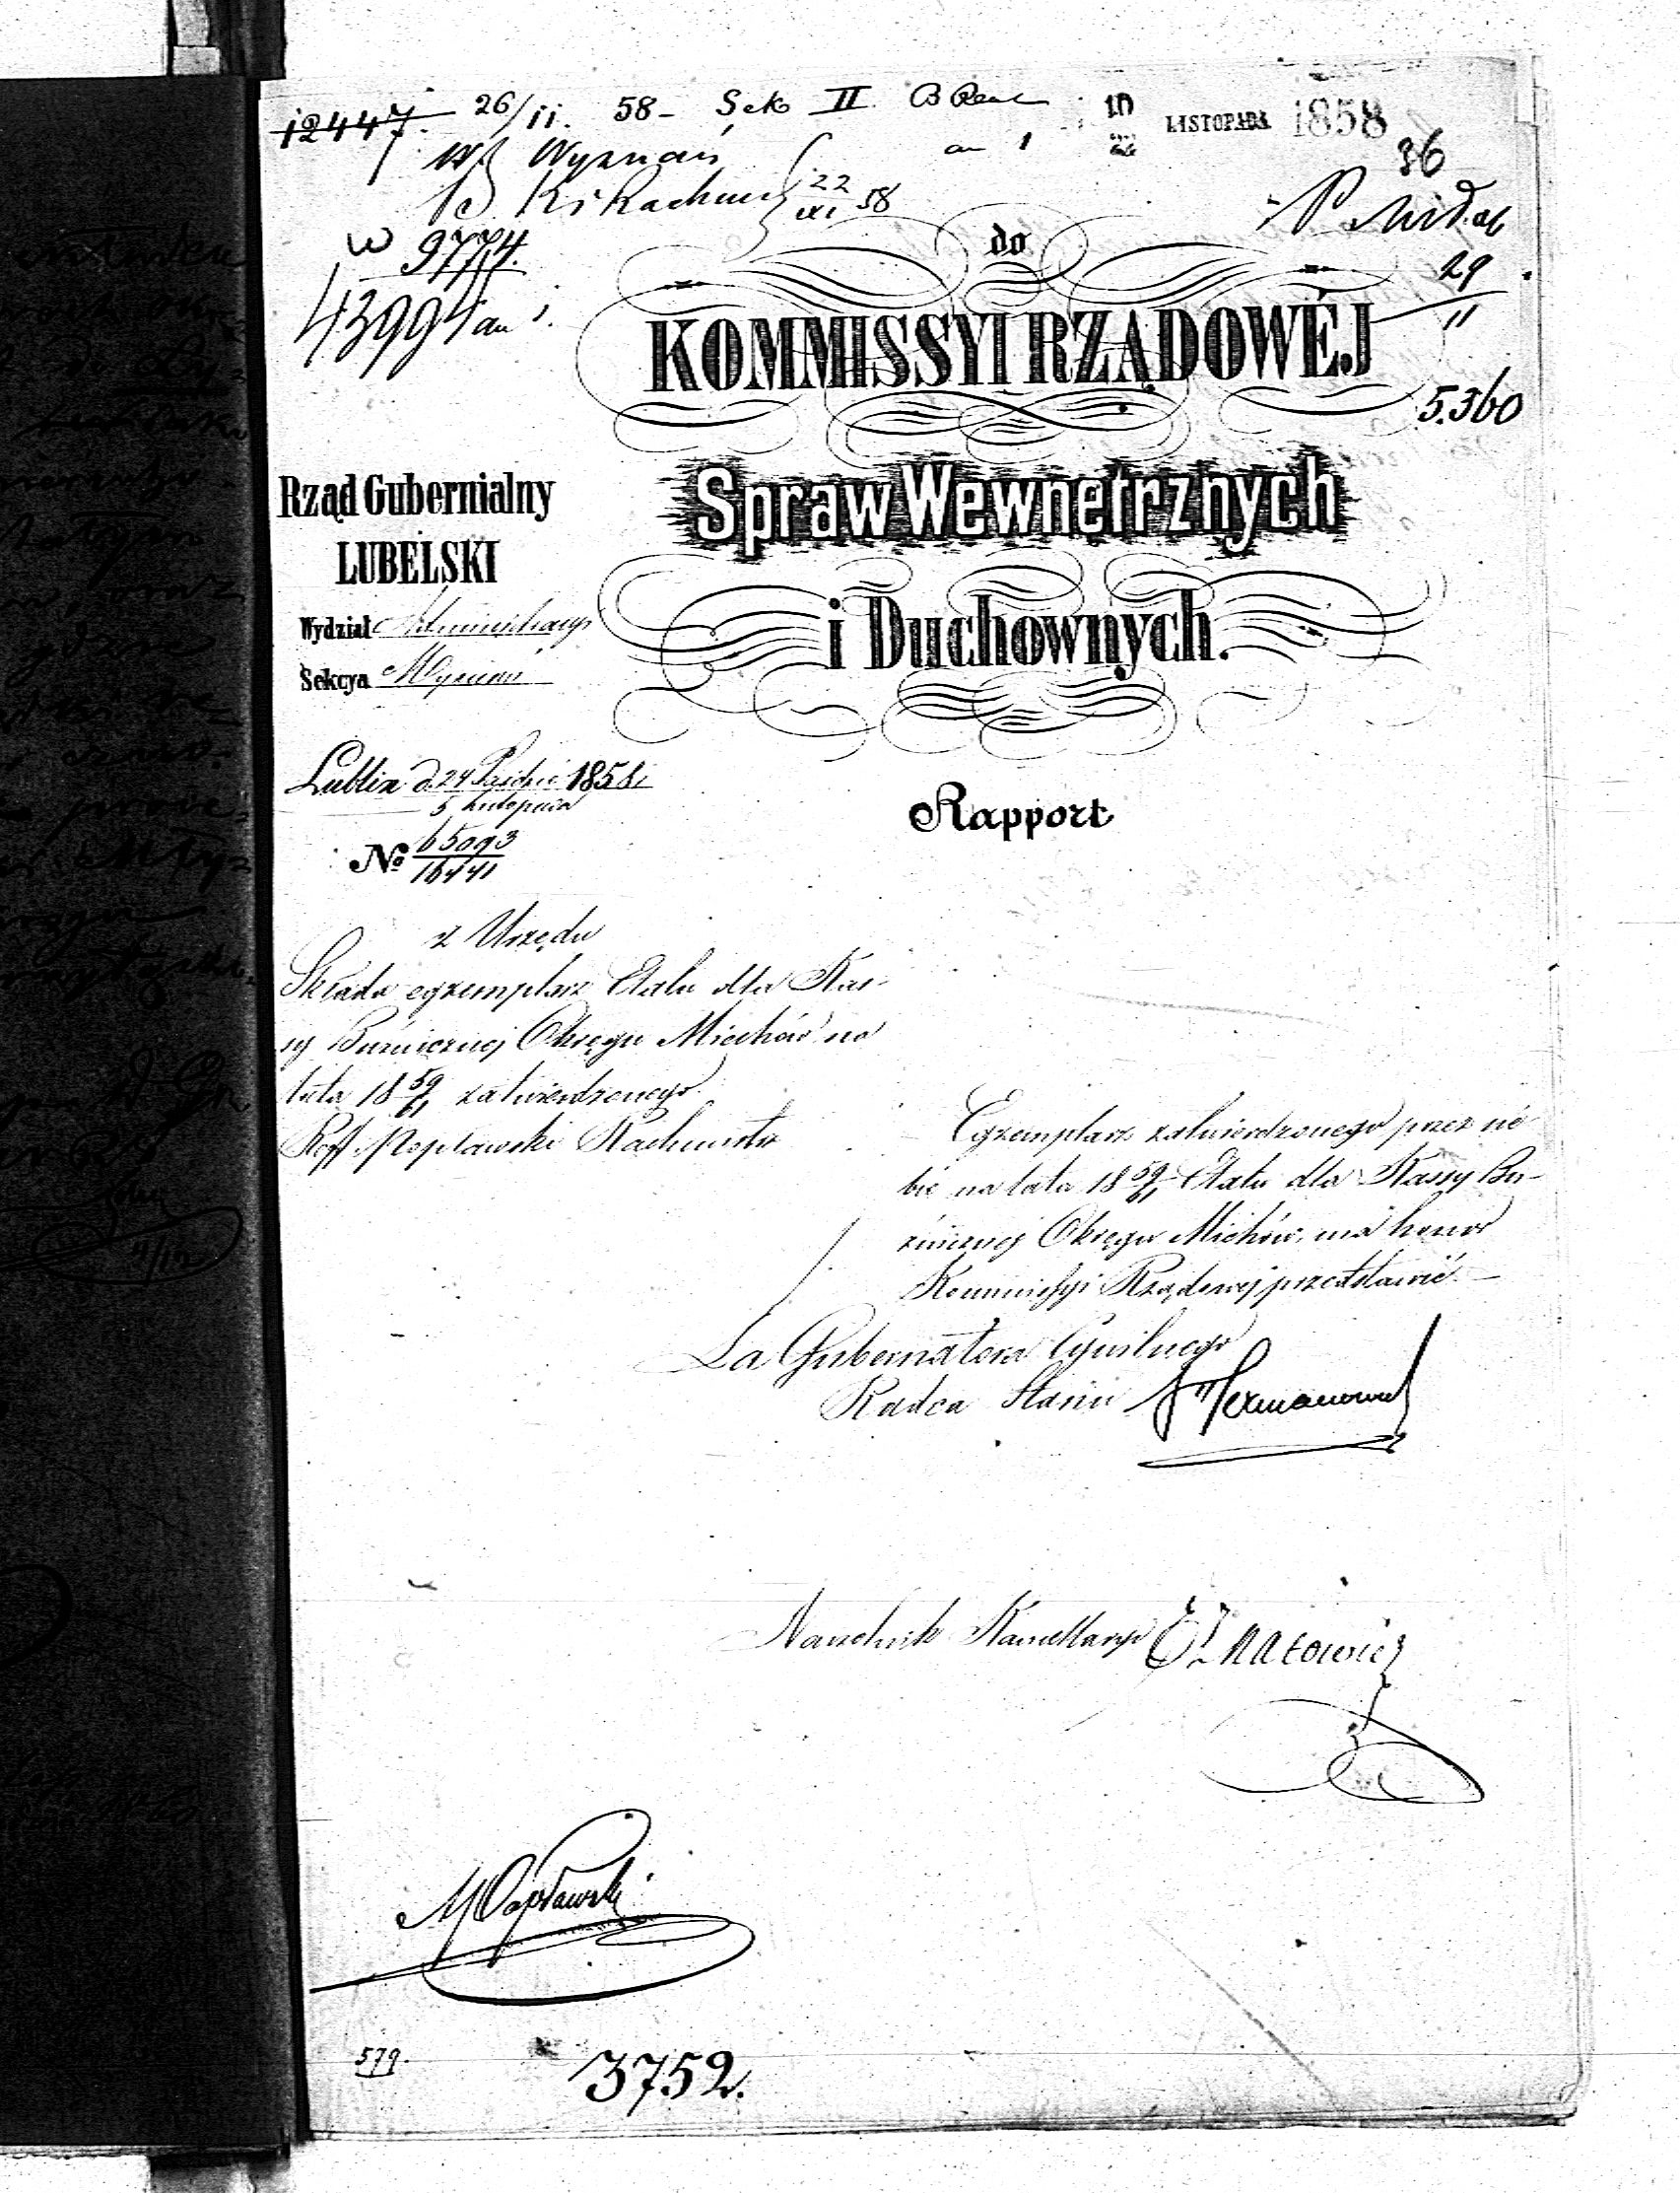 12447. 26/11. 58 - Sek II
10
22 LISTOPADA 1858
36
W Wyznań
an 1
22/XI 58
W 9774.
43994 an 1.
29/11
5.360
do
KOMMISSYI RZĄDOWÉJ
Spraw Wewnętrznych
i Duchownych.
Rząd Gubernialny
LUBELSKI
Wydział Administracyi
Sekcya Wyznań
Lublin d. 24 Paźdz. 1858
5 Listopada
Rapport
№ 65093
16441
z Urzędu
Składa egzemplarz Etatu dla Kas-
sy Bużnicznej Okręgu Miechów na
lata 18 59/61 zatwierdzonego.
Reff. Popławski Rachmistr
Egzemplarz zatwierdzonego przez sie-
bie na lata 18 59/61 Etatu dla Kassy Bu-
żnicznej Okręgu Miechów, ma honor
Kommissyi Rządowej przedstawić.
Za Gubernatora Cywilnego
Radca Stanu
Naczelnik Kancellaryi
MPopławski
579.
3752.